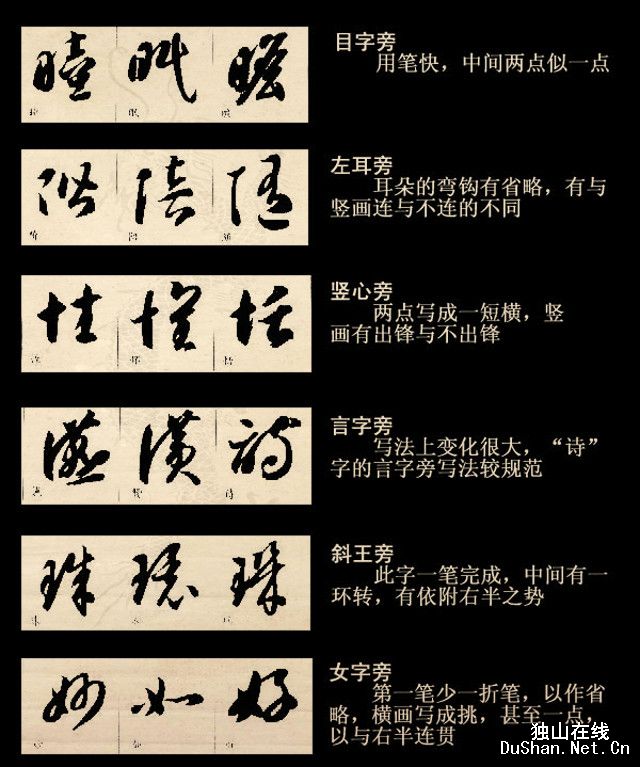 瞳 眠 瞻
目字旁
用笔快，中间两点似一点
阶 陪 随
左耳旁
耳朵的弯钩有省略，有与
竖画连与不连的不同
竖心旁
两点写成一短横，竖
画有出锋与不出锋
诗
言字旁
写法上变化很大，“诗”
字的言字旁写法较规范
珠 环
斜王旁
此字一笔完成，中间有一
环转，有依附右半之势
妙 如 好
女字旁
第一笔少一折笔，以作省
略，横画写成挑，甚至一点，
以与右半连贯
独山在线
DuShan.Net.Cn